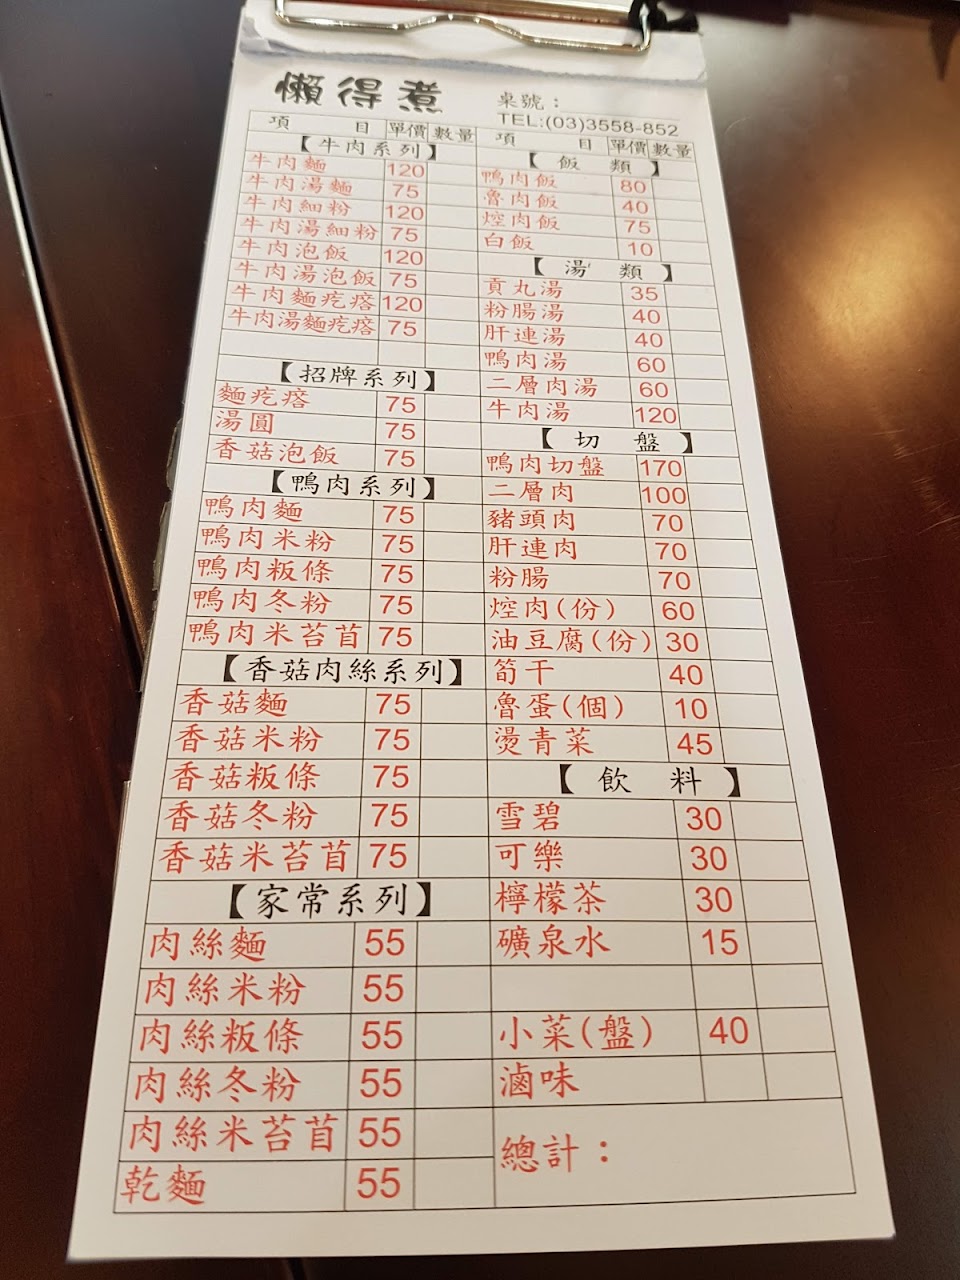 懶得煮
桌號：
TEL:(03)3558-852
項目 單價 數量
【牛肉系列】
牛肉麵 120
牛肉湯麵 75
牛肉細粉 120
牛肉湯細粉 75
牛肉泡飯 120
牛肉湯泡飯 75
牛肉麵疙瘩 120
牛肉湯麵疙瘩 75
【招牌系列】
麵疙瘩 75
湯圓 75
香菇泡飯 75
【鴨肉系列】
鴨肉麵 75
鴨肉米粉 75
鴨肉粄條 75
鴨肉冬粉 75
鴨肉米苔苜 75
【香菇肉絲系列】
香菇麵 75
香菇米粉 75
香菇粄條 75
香菇冬粉 75
香菇米苔苜 75
【家常系列】
肉絲麵 55
肉絲米粉 55
肉絲粄條 55
肉絲冬粉 55
肉絲米苔苜 55
乾麵 55
項目 單價 數量
【飯類】
鴨肉飯 80
魯肉飯 40
焢肉飯 75
白飯 10
【湯類】
貢丸湯 35
粉腸湯 40
肝連湯 40
鴨肉湯 60
二層肉湯 60
牛肉湯 120
【切盤】
鴨肉切盤 170
二層肉 100
豬頭肉 70
肝連肉 70
粉腸 70
焢肉(份) 60
油豆腐(份) 30
筍干 40
魯蛋(個) 10
燙青菜 45
【飲料】
雪碧 30
可樂 30
檸檬茶 30
礦泉水 15
小菜(盤) 40
滷味
總計：